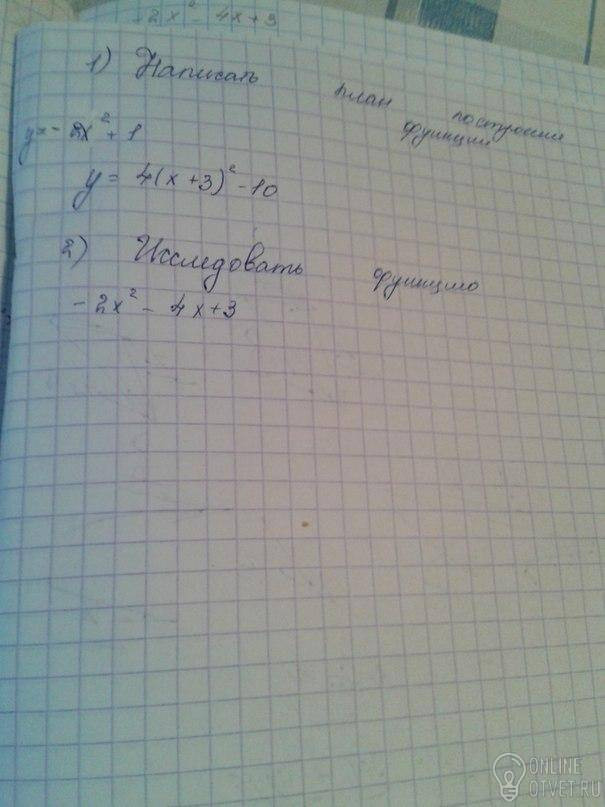 -2x² - 4x + 3
1) Написать план построения функции
y = -2x² + 1
y = 4(x+3)² - 10
2) Исследовать функцию
-2x² - 4x + 3
ONLINE
OTVET.RU